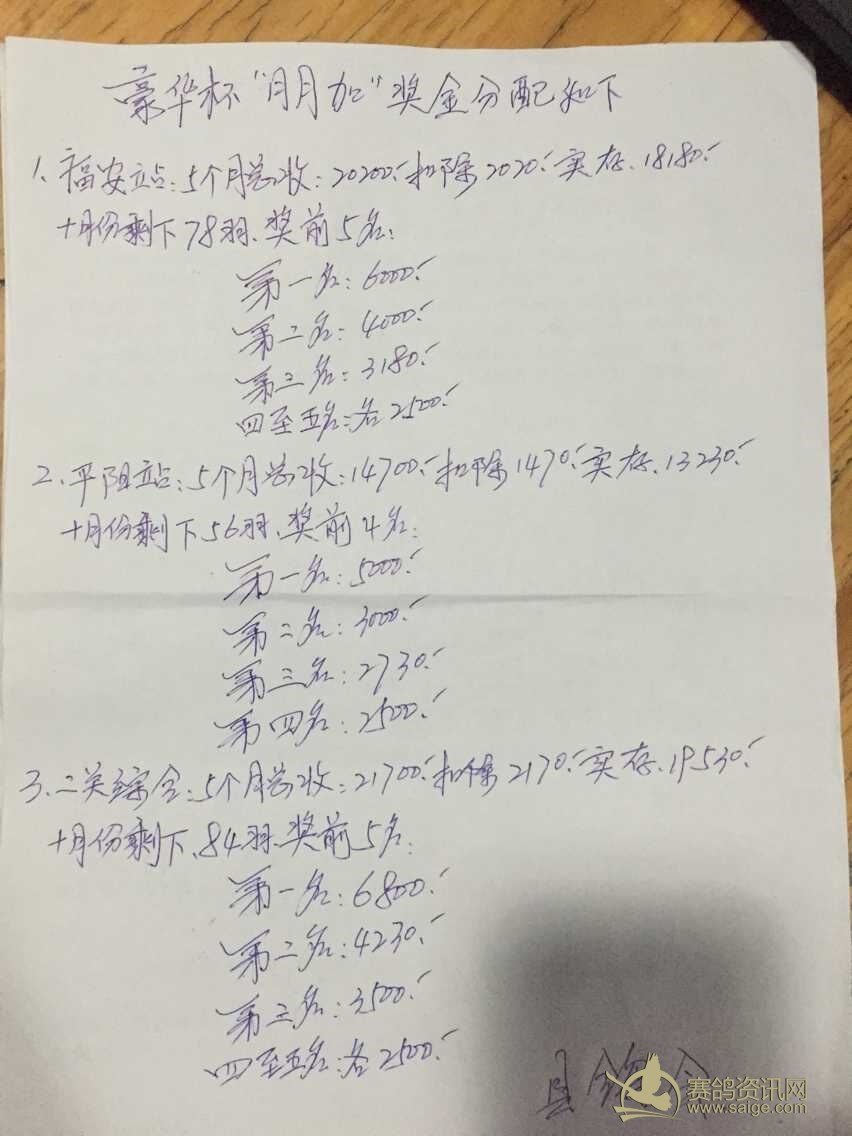 豪华杯“月月加”奖金分配如下
1、福安立站:5个月总收:20200.-扣除2020.-实存.18180.-
十月份剩下78羽.奖前5名:
第一名:6000.-
第二名:4000.-
第三名:3180.-
四至五名:各2500.-
2、平阳立站:5个月总收:14700.-扣除1470.-实存.13230.-
十月份剩下56羽.奖前4名:
第一名:5000.-
第二名:3000.-
第三名:2730.-
第四名:2500.-
3、二关综合:5个月总收:21700.-扣除2170.-实存.19530.-
十月份剩下.84羽.奖前5名:
第一名:6800.-
第二名:4230.-
第三名:3500.-
四至五名:各2500.-
赛鸽资讯网
www.saige.com